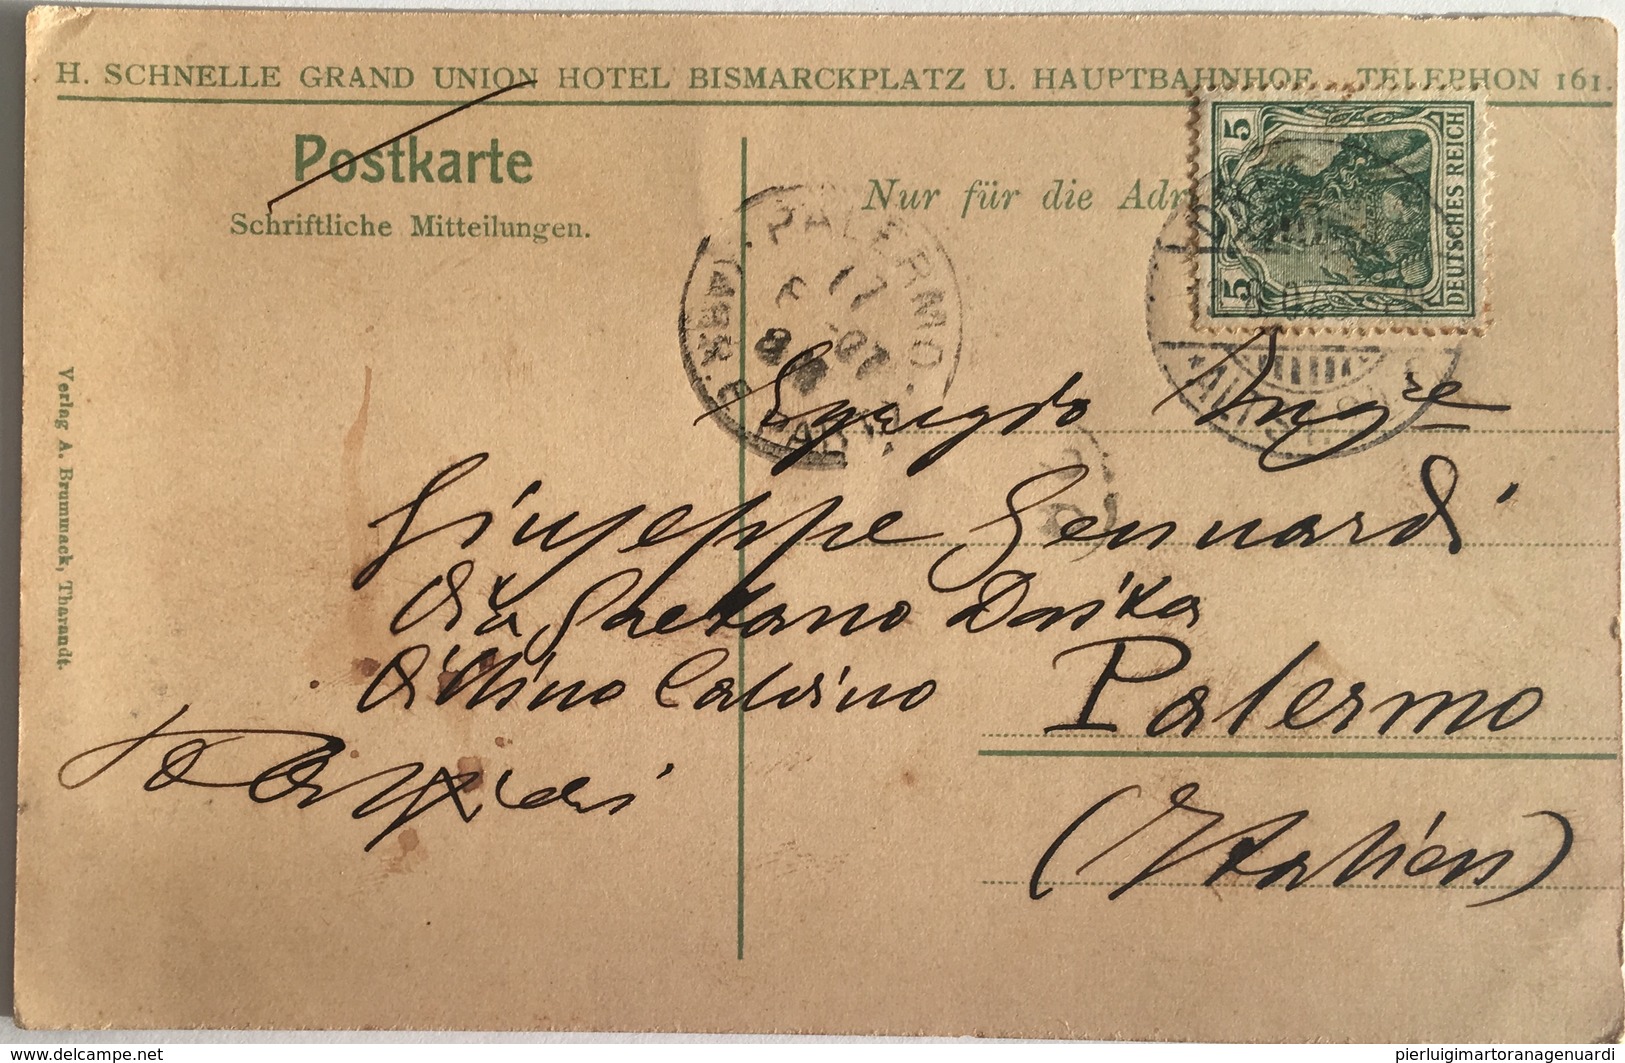 H. SCHNELLE GRAND UNION HOTEL BISMARCKPLATZ U. HAUPTBAHNHOF. TELEPHON 161.
Postkarte
Schriftliche Mitteilungen.
Nur für die Adr
5 5
DEUTSCHES REICH
PALERMO
17
07
Verlag A. Brummack, Tharandt.
Egregio Ing.e
Giuseppe Gennardi
Via Gaetano Daita
Villino Calvino
Palermo
(Italien)
delcampe.net
pierluigimartoranagenuardi